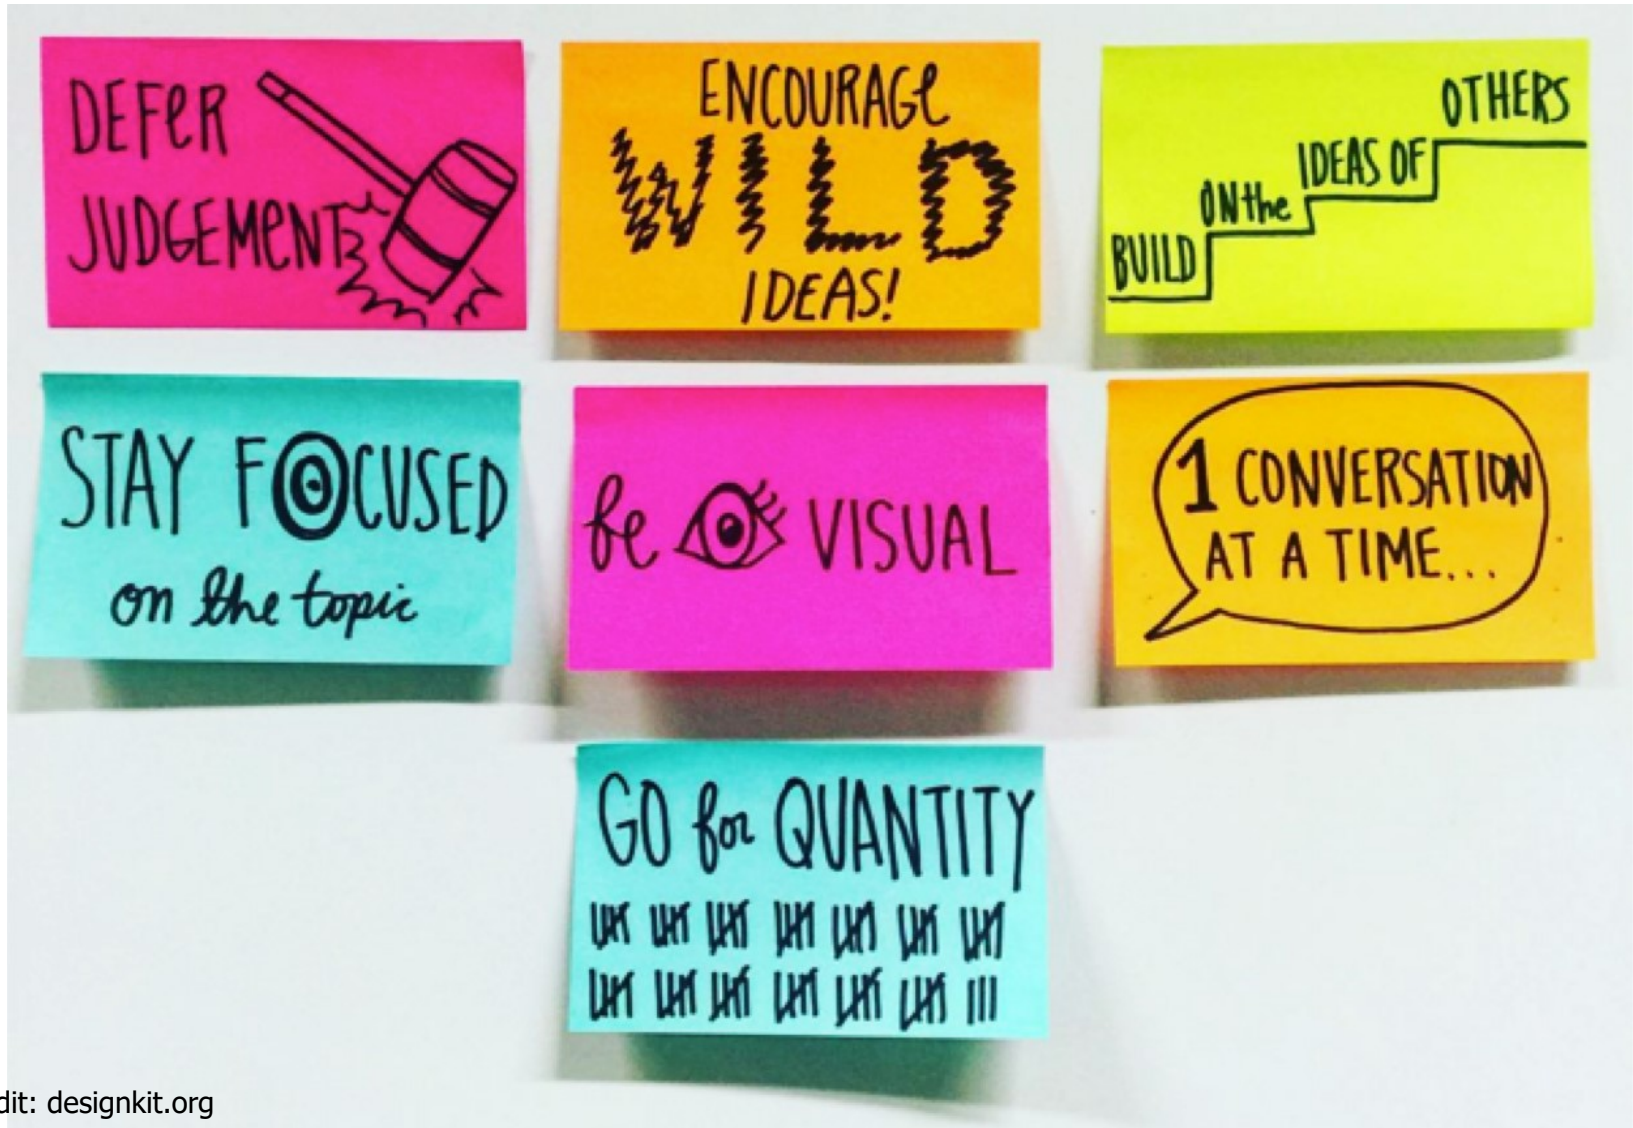 DEFER
JUDGEMENT
ENCOURAGE
WILD
IDEAS!
BUILD ON the IDEAS OF OTHERS
STAY FOCUSED
on the topic
be VISUAL
1 CONVERSATION
AT A TIME...
GO for QUANTITY
dit: designkit.org